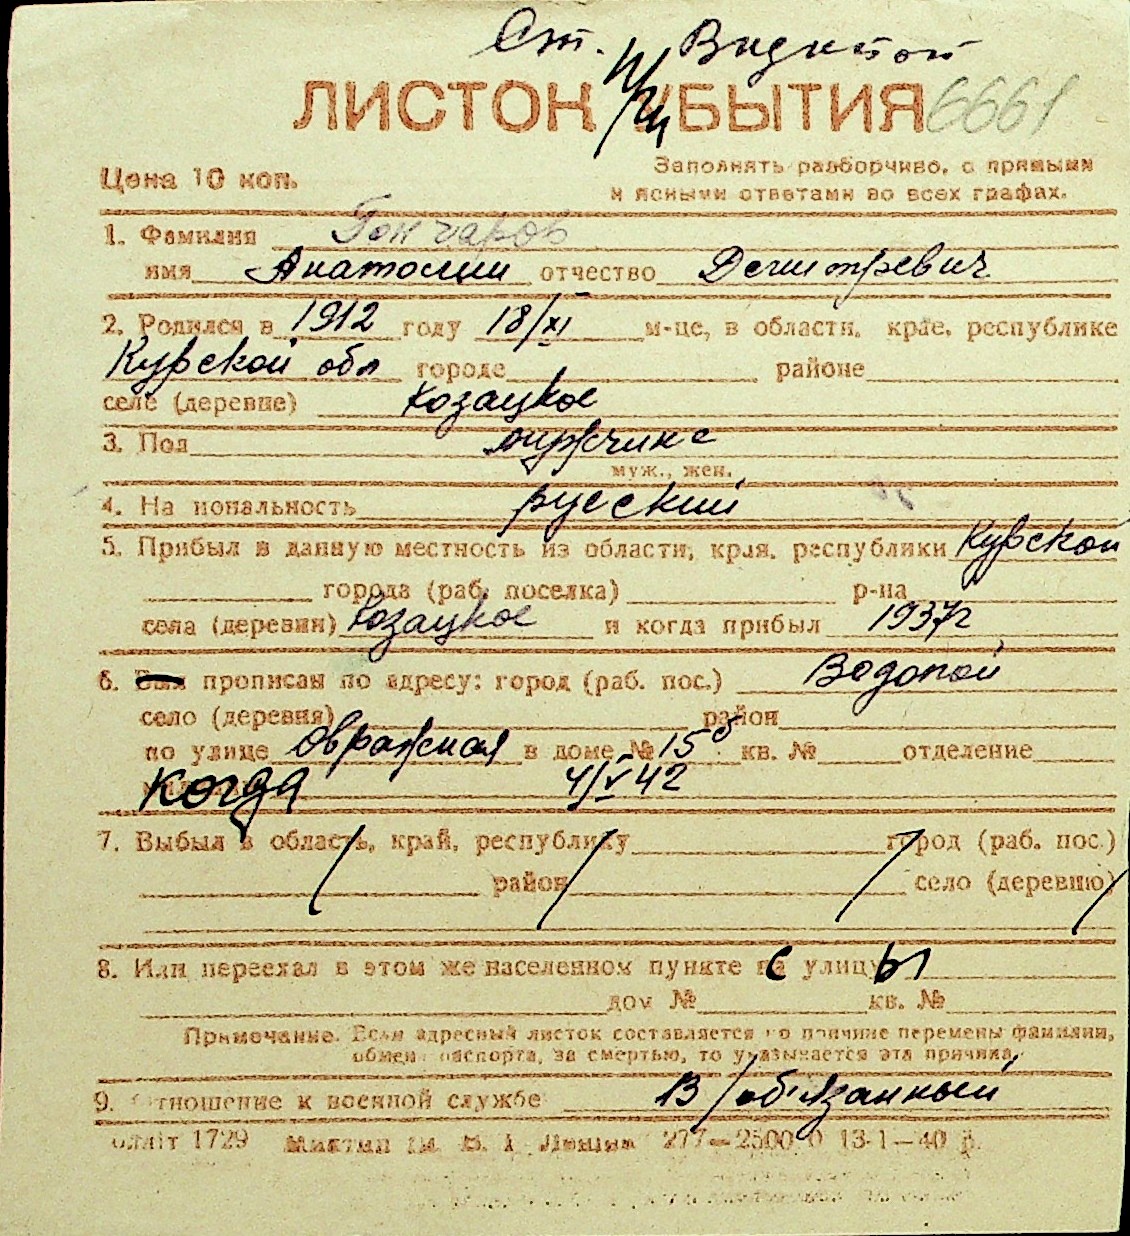 Ст. Водопой
ЛИСТОК УБЫТИЯ 6661
Цена 10 коп.
Заполнять разборчиво, с прямыми
и ясными ответами во всех графах.
1. Фамилия Гончаров
имя Анатолии отчество Демитревич
2. Родился в 1912 году 18/XI м-це, в области, крае, республике
Курской обл городе районе
селе (деревне) Козацкое
3. Пол мужчина
муж., жен.
4. Национальность русский
5. Прибыл в данную местность из области, края, республики Курской
города (раб. поселка) р-на
села (деревни) Козацкое и когда прибыл 1937г
6. Был прописан по адресу: город (раб. пос.) Водопой
село (деревня) район
по улице Овражная в доме № 15б кв. № отделение
когда 4/V 42
7. Выбыл в область, край, республику город (раб. пос.)
район село (деревню)
8. Или переехал в этом же населенном пункте с улицы
дом № кв. №
Примечание. Если адресный листок составляется по причине перемены фамилии,
обмена паспорта, за смертью, то указывается эта причина.
9. Отношение к военной службе В/об'язанный
1729 277—2500 0 13-1—40 р.